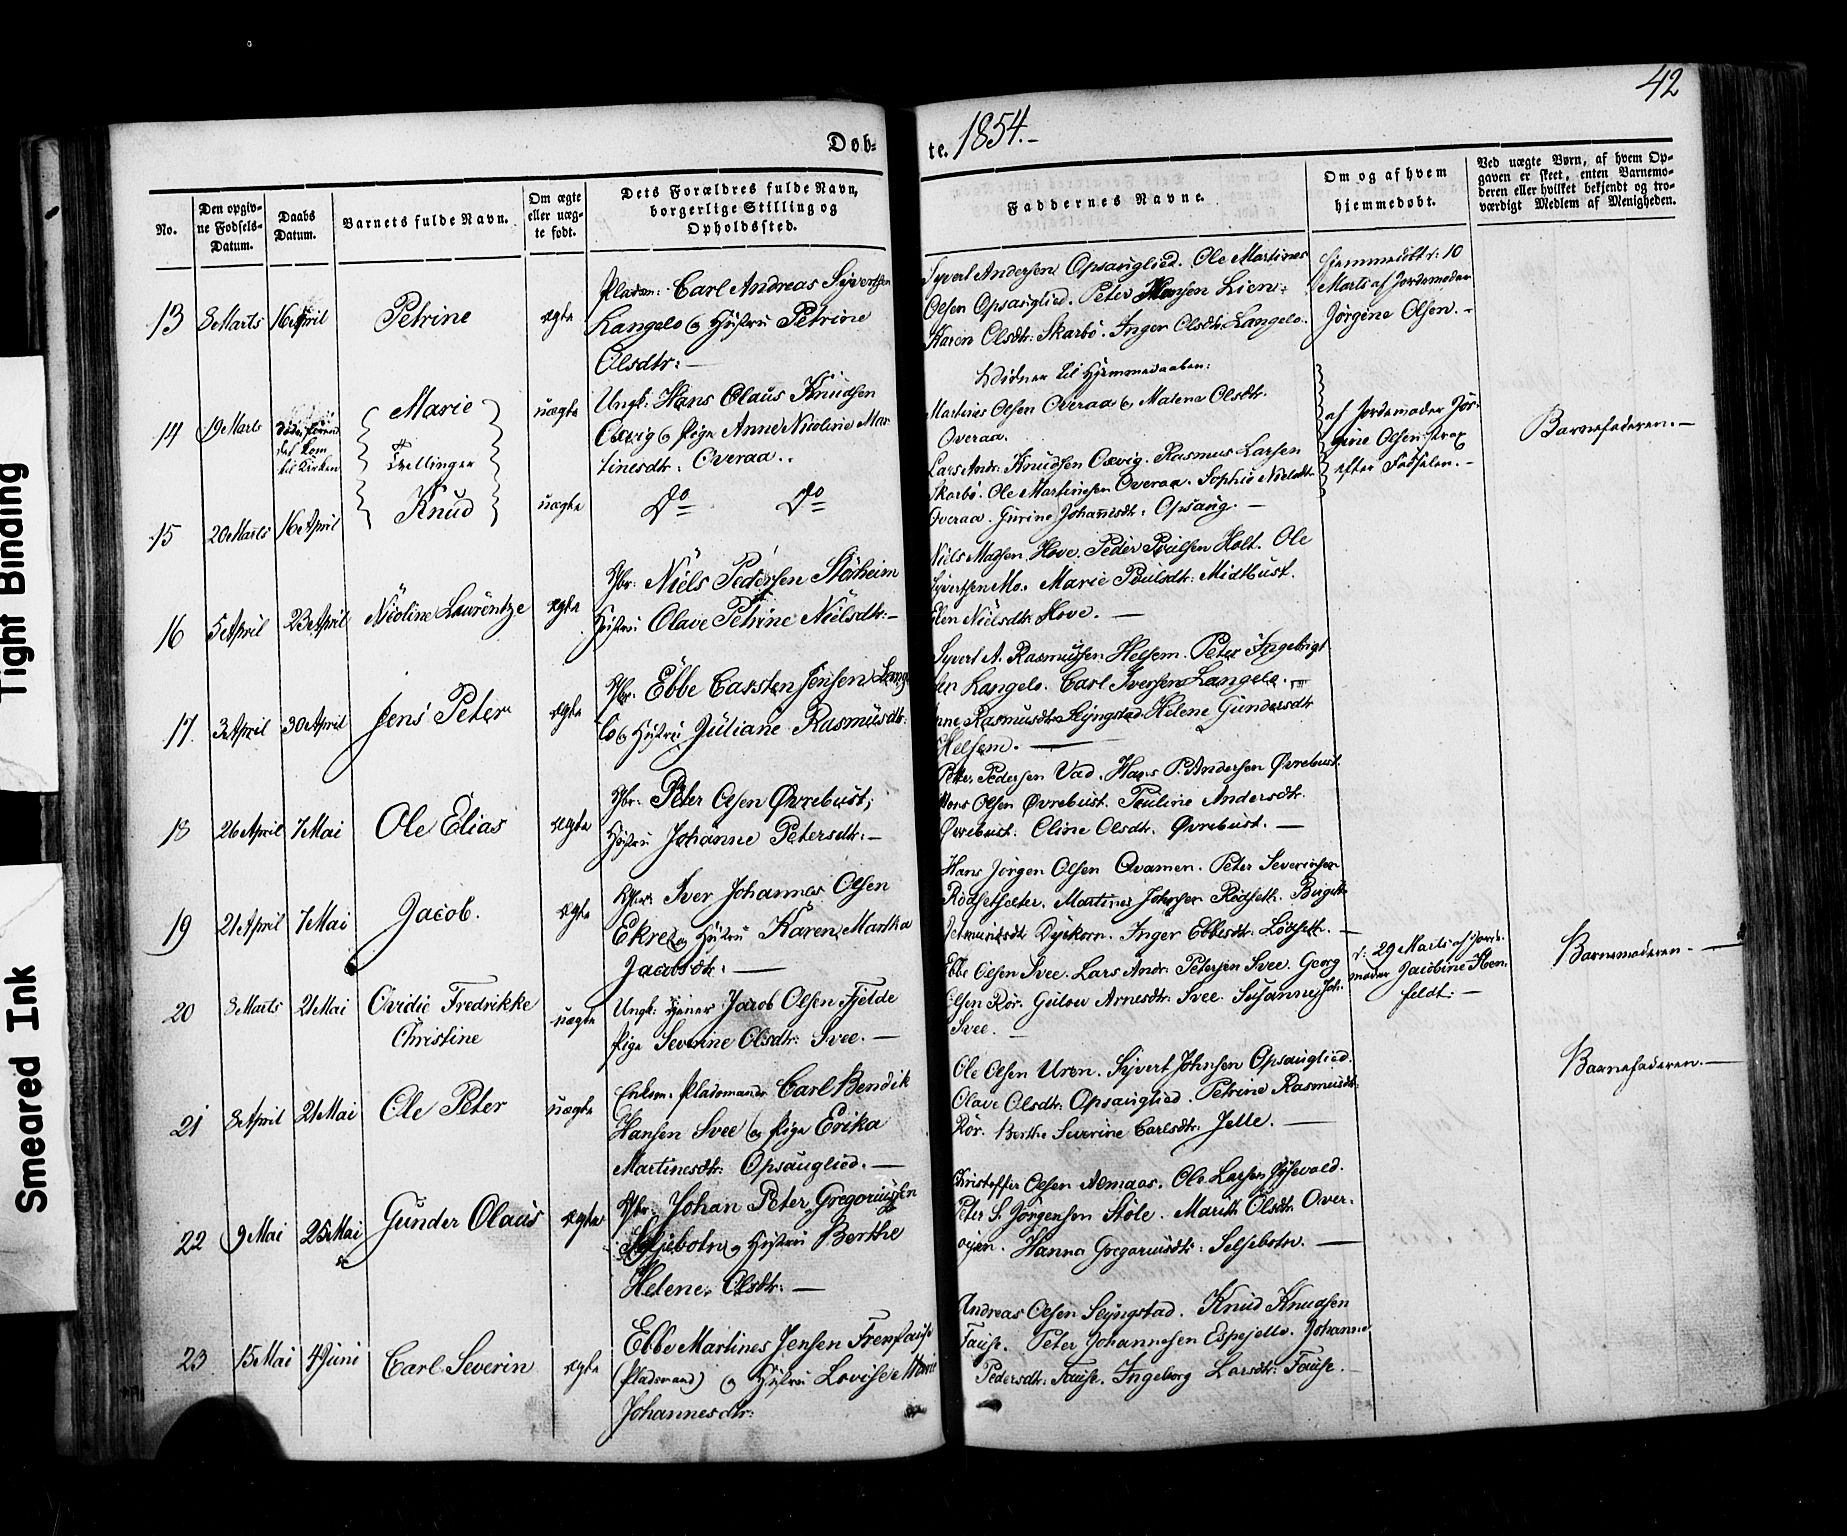 42
Døb-
te. 1854.-
No.
Den opgiv-
ne Fødsels-
Datum.
Daabs
Datum.
Barnets fulde Navn.
Om ægte
eller uæg-
te født.
Dets Forældres fulde Navn,
borgerlige Stilling og
Opholdssted.
Faddernes Navne.
Om og af hvem
hjemmedøbt.
Ved uægte Børn, af hvem Op-
gaven er skeet, enten Barnemo-
deren eller hvilket bekjendt og tro-
værdigt Medlem af Menigheden.
13 8 Marts 16 April Petrine ægte
Pladsm: Carl Andreas Syvertsen
Langelo og Hustru Petrine
Olsdtr: —
Syvert Andersen Opsauglied. Ole Martines
Olsen Opsauglied. Peter Hansen Lien.
Karen Olsdtr: Skarbö. Inger Olsdtr: Langelo.
Hjemmedöbt d: 10
Marts af Jordemoder
Jörgine Olsen. -
14 19 Marts
döde förend
det kom
til Kirken
Marie
Tvillinger
uægte
Ungk: Hans Olaus Knudsen
Oxvig og Pige Anne Nicoline Mar-
tinesdtr: Overaa..
Vidner til Hjemmedaaben:
Martines Olsen Overaa og Malene Olsdtr.
Overaa.
af Jordemoder Jör-
gine Olsen strax
efter Födselen. -
Barnefaderen. —
15 20 Marts 16 April Knud uægte
Do Do
Lars Andr: Knudsen Oxvig. Rasmus Larsen
Skarbö. Ole Martinsen Overaa. Sophie Nielsdtr
Overaa. Gurine Johannsdtr: Opsaug. —
16 5 April 23 April Nicoline Laurentze ægte
Gbr: Niels Pedersen Storheim
Hustru Olave Petrine Nielsdtr: —
Niels Madsen Hove. Peder Poulsen Holt. Ole
Syvertsen Mo. Marie Poulsdtr: Midtbust.
Elen Nielsdtr: Hove. —
17. 3 April 30 April Jens Peter ægte
Gbr: Ebbe Carsten Jensen Lange
lo og Hustru Juliane Rasmusdtr:
Syvert A. Rasmussen Helsem. Peter Ingebrigt
sen Langelo. Carl Iversen Langelo.
Anne Rasmusdtr: Slyngstad. Helene Gundersdtr
Helsem. —
18 26 April 7 Mai Ole Elias ægte
Gbr: Peter Olsen Øvrebust,
Hustru Johanne Petersdtr: —
Petter Pedersen Vad. Hans P. Andersen Øvrebust.
Mons Olsen Øvrebust. Pauline Andersdtr:
Øvrebust. Oline Olsdtr. Øvrebust. —
19 21 April 7 Mai Jacob. ægte
Iver Johannes Olsen
Ekrem og Hustru Karen Martha
Jacobsdtr: —
Hans Jörgen Olsen Qvamen. Peter Severinsen
Rödsetsæter. Martines Johnsen Rödseth. Birgitte
Dyrkorn. Inger Ebbesdtr: Lödseth. —
20 8 Marts 21 Mai Ovidie Fredrikke
Christine uægte
Ungk: tjener Jacob Olsen Fjelde
Pige Severine Olsdtr: Svee. —
Ebbe Olsen Svee. Lars Andr: Petersen Svee. Georg
Olsen Rör. Gulow Arnesdtr: Svee. Susanne Joh:
Svee. —
d: 29 Marts af Jorde-
moder Jacobine Steen
feldt: —
Barnemoderen. —
21 8 April 21 Mai Ole Peter uægte
Enkem: Pladsmand Carl Bendik
Hansen Svee og Pige Erika
Martinesdtr: Opsauglied. —
Ole Olsen Uren. Syvert Johnsen Opsauglied.
Olave Olsdtr: Opsauglied. Petrine Rasmusdtr
Rör. Berthe Severine Carlsdtr: Jelle. —
Barnefaderen. —
22 9 Mai 25 Mai Gunder Olaus ægte
Gbr: Johan Peter Gregoriussen
Selsebotn og Hustru Berthe
Helene Olsdtr: —
Christoffer Olsen Aemaas. Ole Larsen
Peter S. Jörgensen Stöle. Marith Olsdtr. Over-
oyen. Hanna Gregoriusdtr: Selsebotn. —
23 15 Mai 4 Juni Carl Severin ægte
Ebbe Martines Jensen Fremfause
(Pladsmand) og Hustru Lovise Marie
Johannesdtr:
Andreas Olsen Slyngstad. Knud Knudsen
Fause. Peter Johannesen Espejelle. Johanne
Pedersdtr: Fause. Ingeborg Larsdtr: Fause.
Tight Binding
Smeared Ink